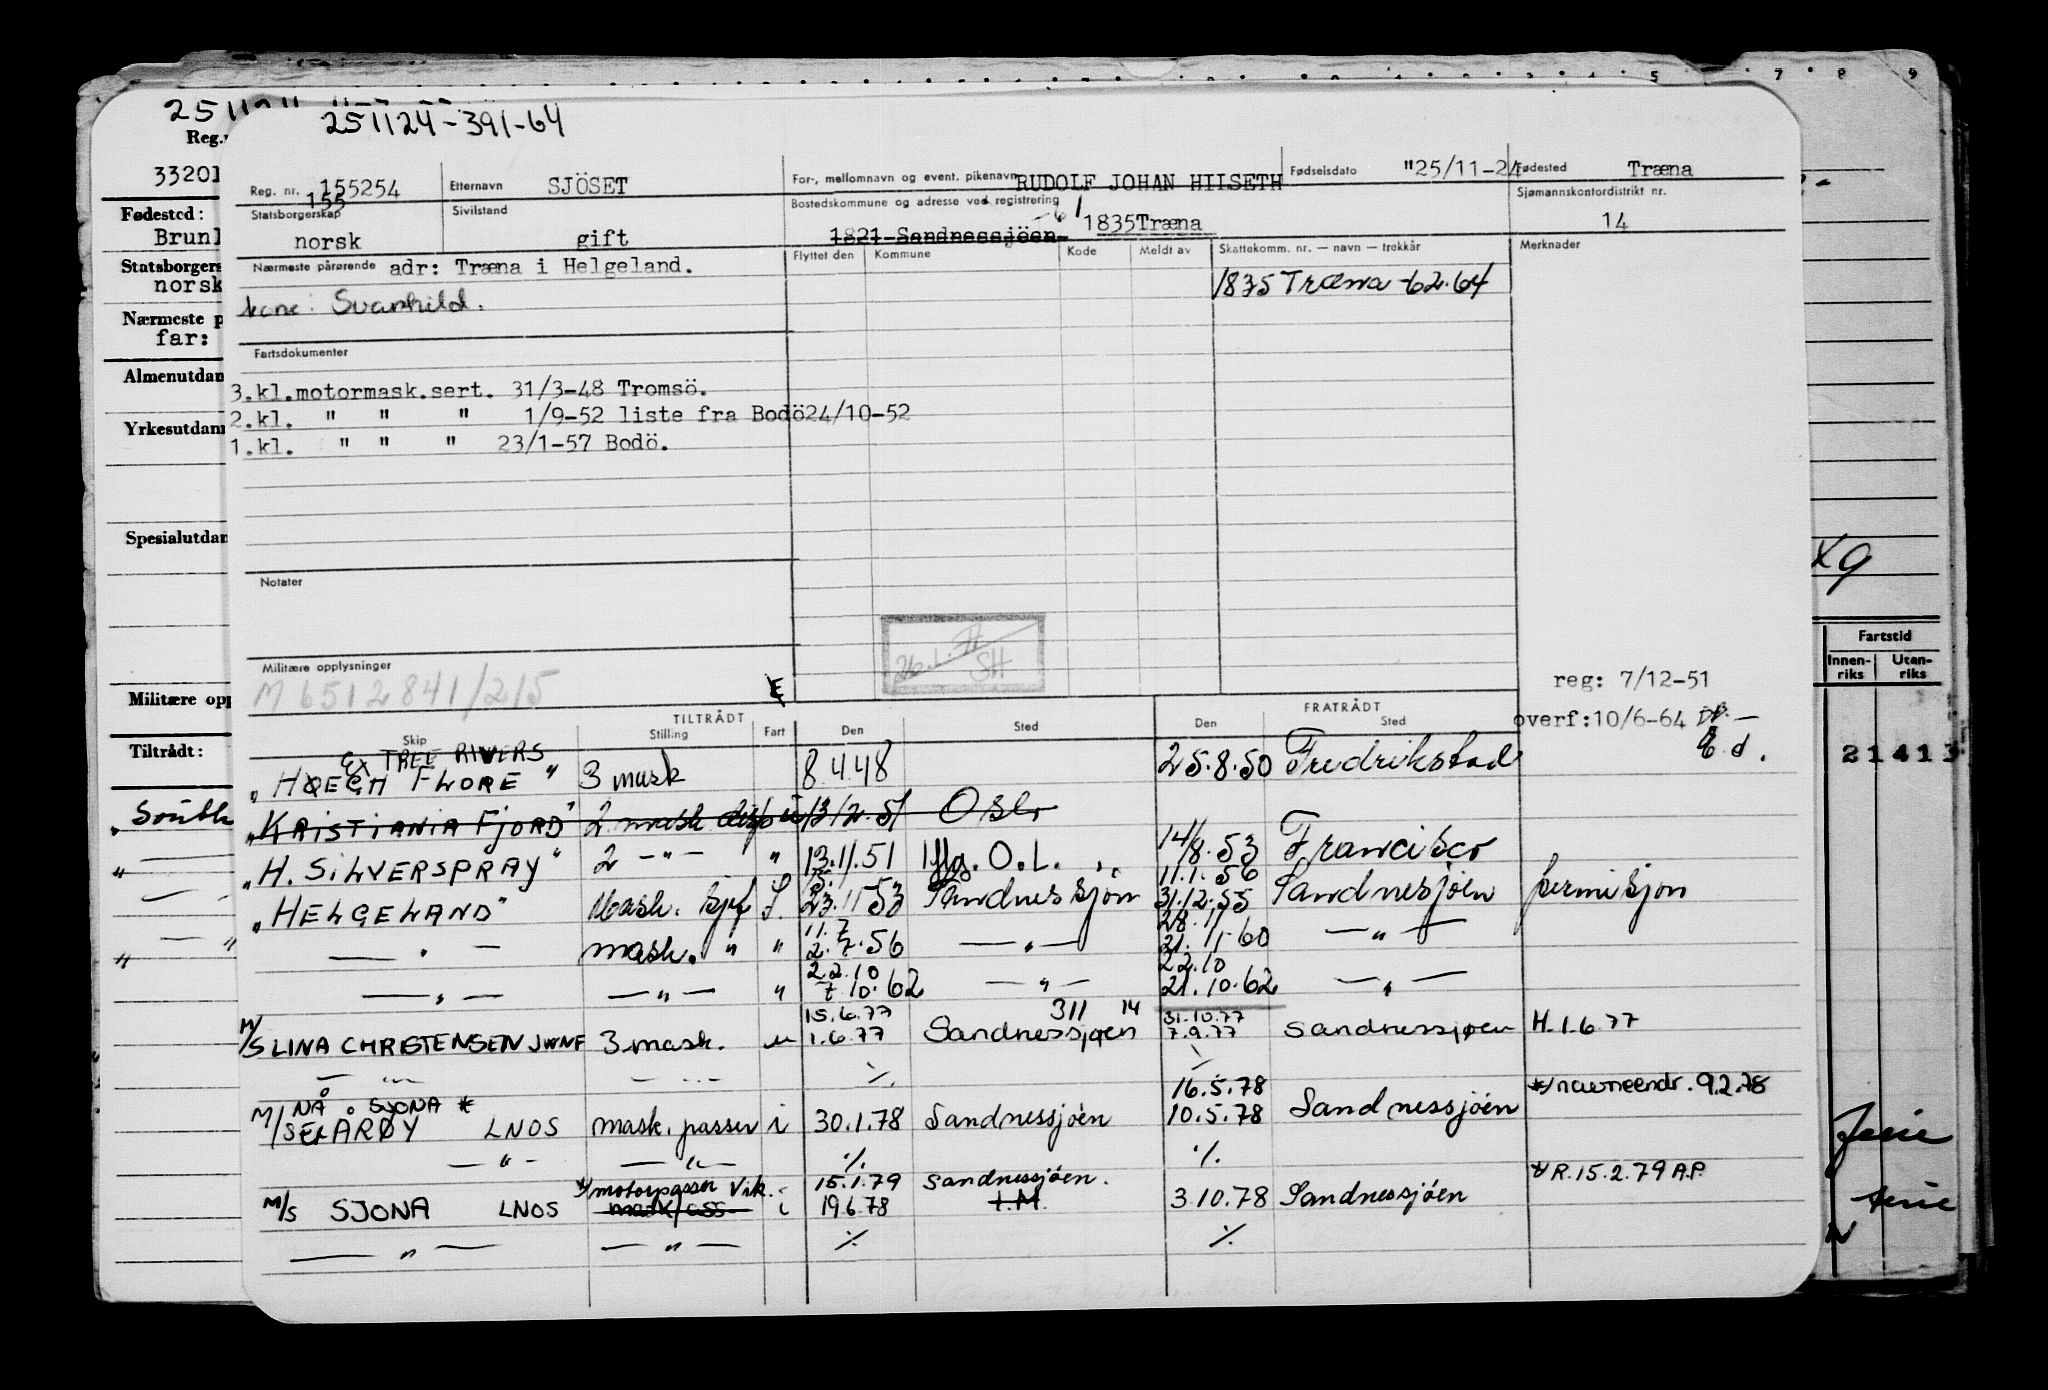 251124-391-64
Reg. nr. 155254 Etternavn SJÖSET For-, mellomnavn og event. pikenavn RUDOLF JOHAN HIISETH Fødselsdato "25/11-24 Fødested Træna
155
Statsborgerskap norsk Sivilstand gift Bostedskommune og adresse ved registrering 1821 Sandnessjöen -61 1835 Træna Sjømannskontordistrikt nr. 14
Nærmeste pårørende adr: Træna i Helgeland. Flyttet den Kommune Kode Meldt av Skattekomm. nr. — navn — trekkår Merknader
kone: Svanhild. 1835 Træna -62.64
Fartsdokumenter
3.kl.motormask.sert. 31/3-48 Tromsö.
2.kl. " " " 1/9-52 liste fra Bodö24/10-52
1.kl. " " " 23/1-57 Bodö.
Notater
SH
Militære opplysninger
M 6512841/2/5
reg: 7/12-51
overf:10/6-64
TILTRÅDT FRATRÅDT
Skip Stilling Fart Den Sted Den Sted
Ex TREE RIVERS
"HØEGH FLORE" 3 mask 8.4.48 25.8.50 Fredrikstad
"KRISTIANIA FJORD" 2 mask 13/2.51 Oslo
"H. SILVERSPRAY" 2 —"— " 13.11.51 O.L. 14/8.53 Francisco
11.1.56
"HELGELAND" Mask. 23.11 53 Sandnessjön 31.12.55 Sandnessjöen permisjon
11.7 28.11
— " — mask. " " 2.7.56 — " — 21.11.60 — " —
22.10 22.10
— " — — " — " 7.10.62 — " — 21.10.62 — " —
15.6.77 311 14 31.10.77
M/S LINA CHRISTENSEN JWNF 3 mask. u 1.6.77 Sandnessjøen 7.9.77 Sandnessjøen H.1.6.77
— " — — " — ٪ ٪
NÅ SJONA * 16.5.78 */navneendr. 9.2.78
M/S EX ARØY LNOS mask. passer i 30.1.78 Sandnessjöen 10.5.78 Sandnessjöen
— " — — " — ٪ ٪
*/motorpasser Vik. 15.1.79 Sandnessjöen. */R.15.2.79 A.P.
M/S SJONA LNOS mask/ass i 19.6.78 t.M. 3.10.78 Sandnessjöen
— " — — " — ٪ ٪
Reg.
33201
Fødested:
Brunl
Statsborgers
norsk
Nærmeste p
far:
Almenutdan
Yrkesutdann
Spesialutdan
Militære opp
Tiltrådt:
"South
5 7 8 9
Fartstid
Innenriks Utanriks
21413